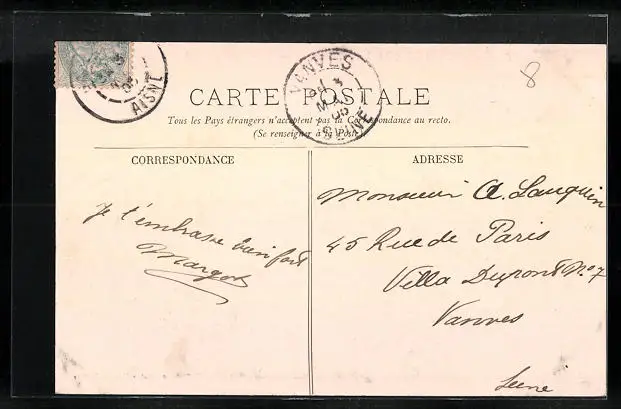 AISNE
VANVES
SEINE
8
CARTE POSTALE
Tous les Pays étrangers n'acceptent pas la Correspondance au recto.
(Se renseigner à la Poste)
CORRESPONDANCE
Je t'embrasse bien fort
Margot
ADRESSE
Monsieur A. Lauquin
45 Rue de Paris
Villa Dupont No 7
Vanves
Seine